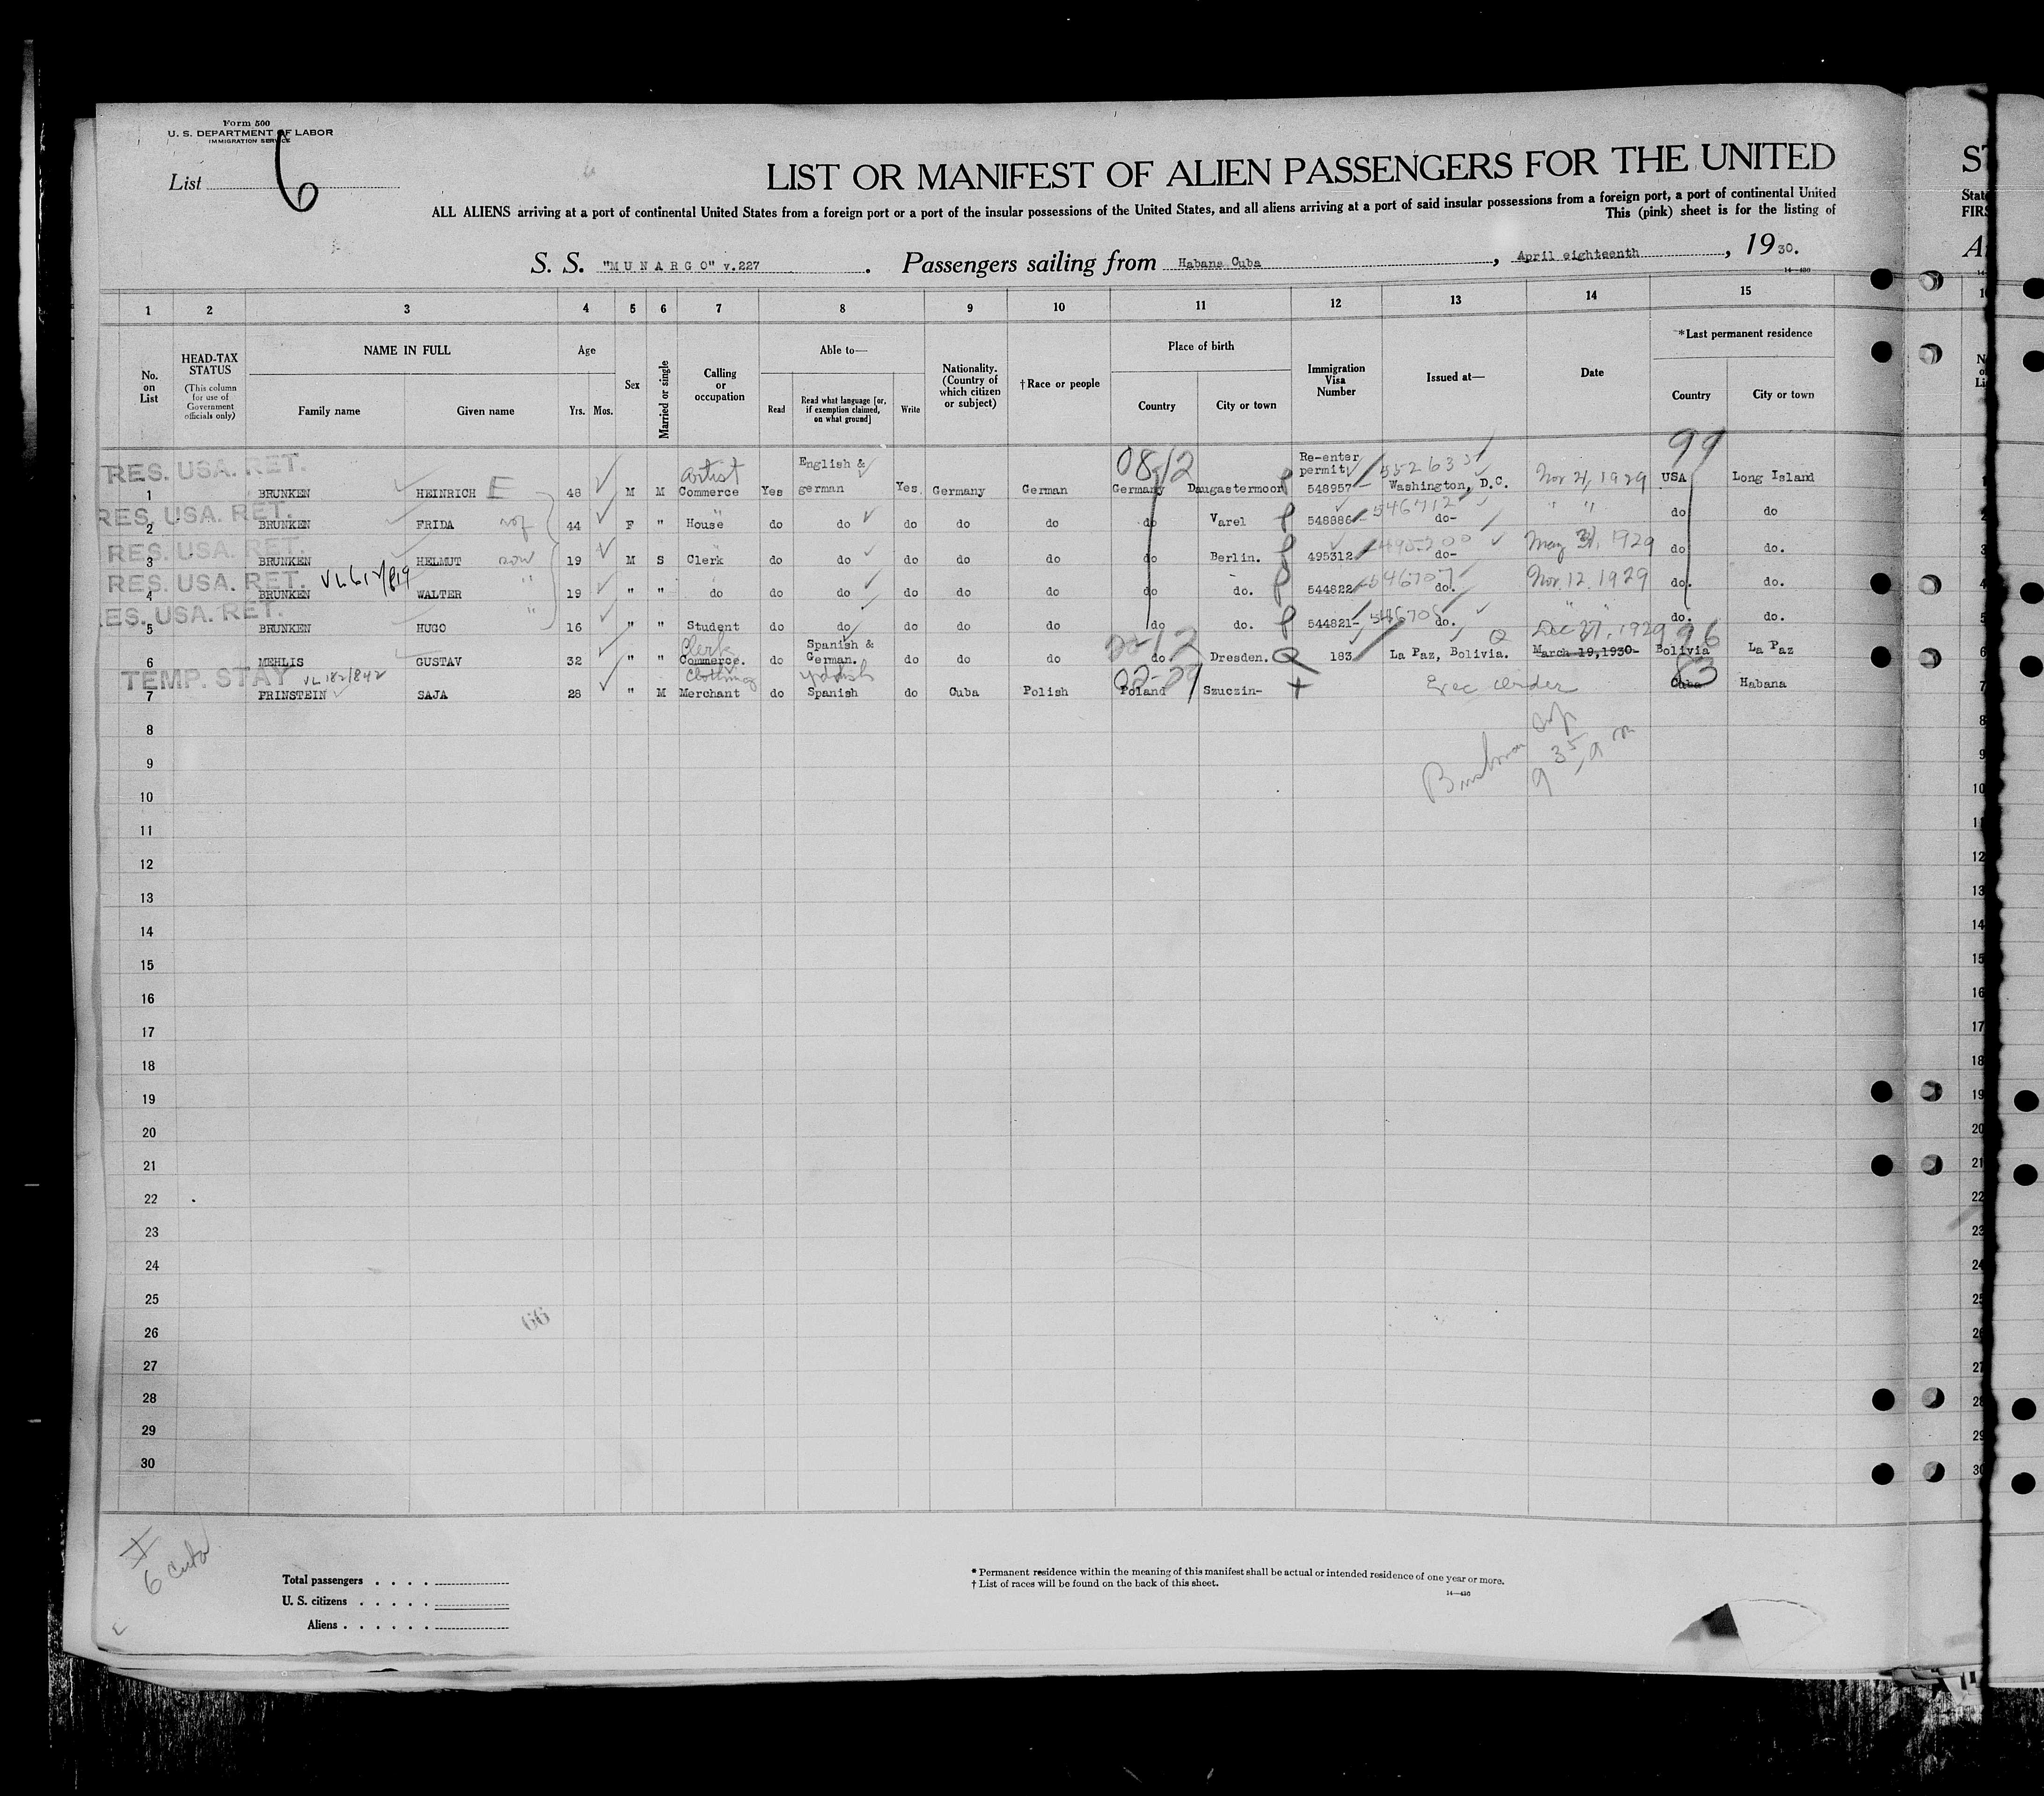 Form 500
U. S. DEPARTMENT OF LABOR
IMMIGRATION SERVICE
List 6
LIST OR MANIFEST OF ALIEN PASSENGERS FOR THE UNITED
ALL ALIENS arriving at a port of continental United States from a foreign port or a port of the insular possessions of the United States, and all aliens arriving at a port of said insular possessions from a foreign port, a port of continental United
This (pink) sheet is for the listing of
S. S. "M U N A R G O" v.227 . Passengers sailing from Habana Cuba , April eighteenth , 19 30.
14—430
1 2 3 4 5 6 7 8 9 10 11 12 13 14 15
No. on List
HEAD-TAX STATUS (This column for use of Government officials only)
NAME IN FULL Family name Given name
Age Yrs. Mos.
Sex
Married or single
Calling or occupation
Able to— Read Read what language [or, if exemption claimed, on what ground] Write
Nationality. (Country of which citizen or subject)
†Race or people
Place of birth Country City or town
Immigration Visa Number
Issued at—
Date
*Last permanent residence Country City or town
RES. USA. RET. artist English & 08-12 Re-enter permit 99
1 BRUNKEN HEINRICH E 48 M M Commerce Yes german Yes. Germany German Germany Daugastermoor 548957- Washington, D.C. Nov 21, 1929 USA Long Island
RES. USA. RET. 546712
2 BRUNKEN FRIDA wf 44 F " House do do do do do do Varel 548886- do- " " do do
RES. USA. RET.
3 BRUNKEN HELMUT son 19 M S Clerk do do do do do do Berlin. 495312 do- May 31, 1929 do do.
RES. USA. RET. 546707
4 BRUNKEN WALTER " 19 " " do do do do do do do do. 544822- do. Nov. 12. 1929 do. do.
RES. USA. RET.
5 BRUNKEN HUGO " 16 " " Student do do do do do do do. 544821- do. " " do. do.
Clerk Spanish & 00-12 Dec 27, 1929 96
6 MEHLIS GUSTAV 32 " " Commerce. do German. do do do do Dresden. 183 La Paz, Bolivia. March 19,1930- Bolivia La Paz
TEMP. STAY VL 182/842 Clothing yiddish 02-29 83
7 PRINSTEIN SAJA 28 " M Merchant do Spanish do Cuba Polish Poland Szuczin- Exec order Cuba Habana
8
9 9 35, am
10
11
12
13
14
15
16
17
18
19
20
21
22
23
24
25
66
26
27
28
29
30
6 Cuba
Total passengers . . . .
U. S. citizens . . . . .
Aliens . . . . . .
* Permanent residence within the meaning of this manifest shall be actual or intended residence of one year or more.
† List of races will be found on the back of this sheet.
14—430